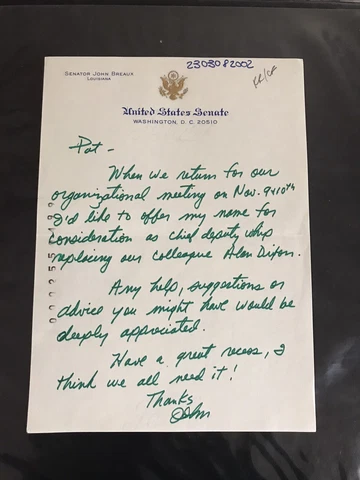 2303082002
SENATOR JOHN BREAUX
LOUISIANA
United States Senate
WASHINGTON, D. C. 20510
Pat -
When we return for our
organizational meeting on Nov. 9 & 10th
I'd like to offer my name for
consideration as chief deputy whip
replacing our colleague Alan Dixon.
Any help, suggestions or
advice you might have would be
deeply appreciated.
Have a great recess, I
think we all need it!
Thanks
John